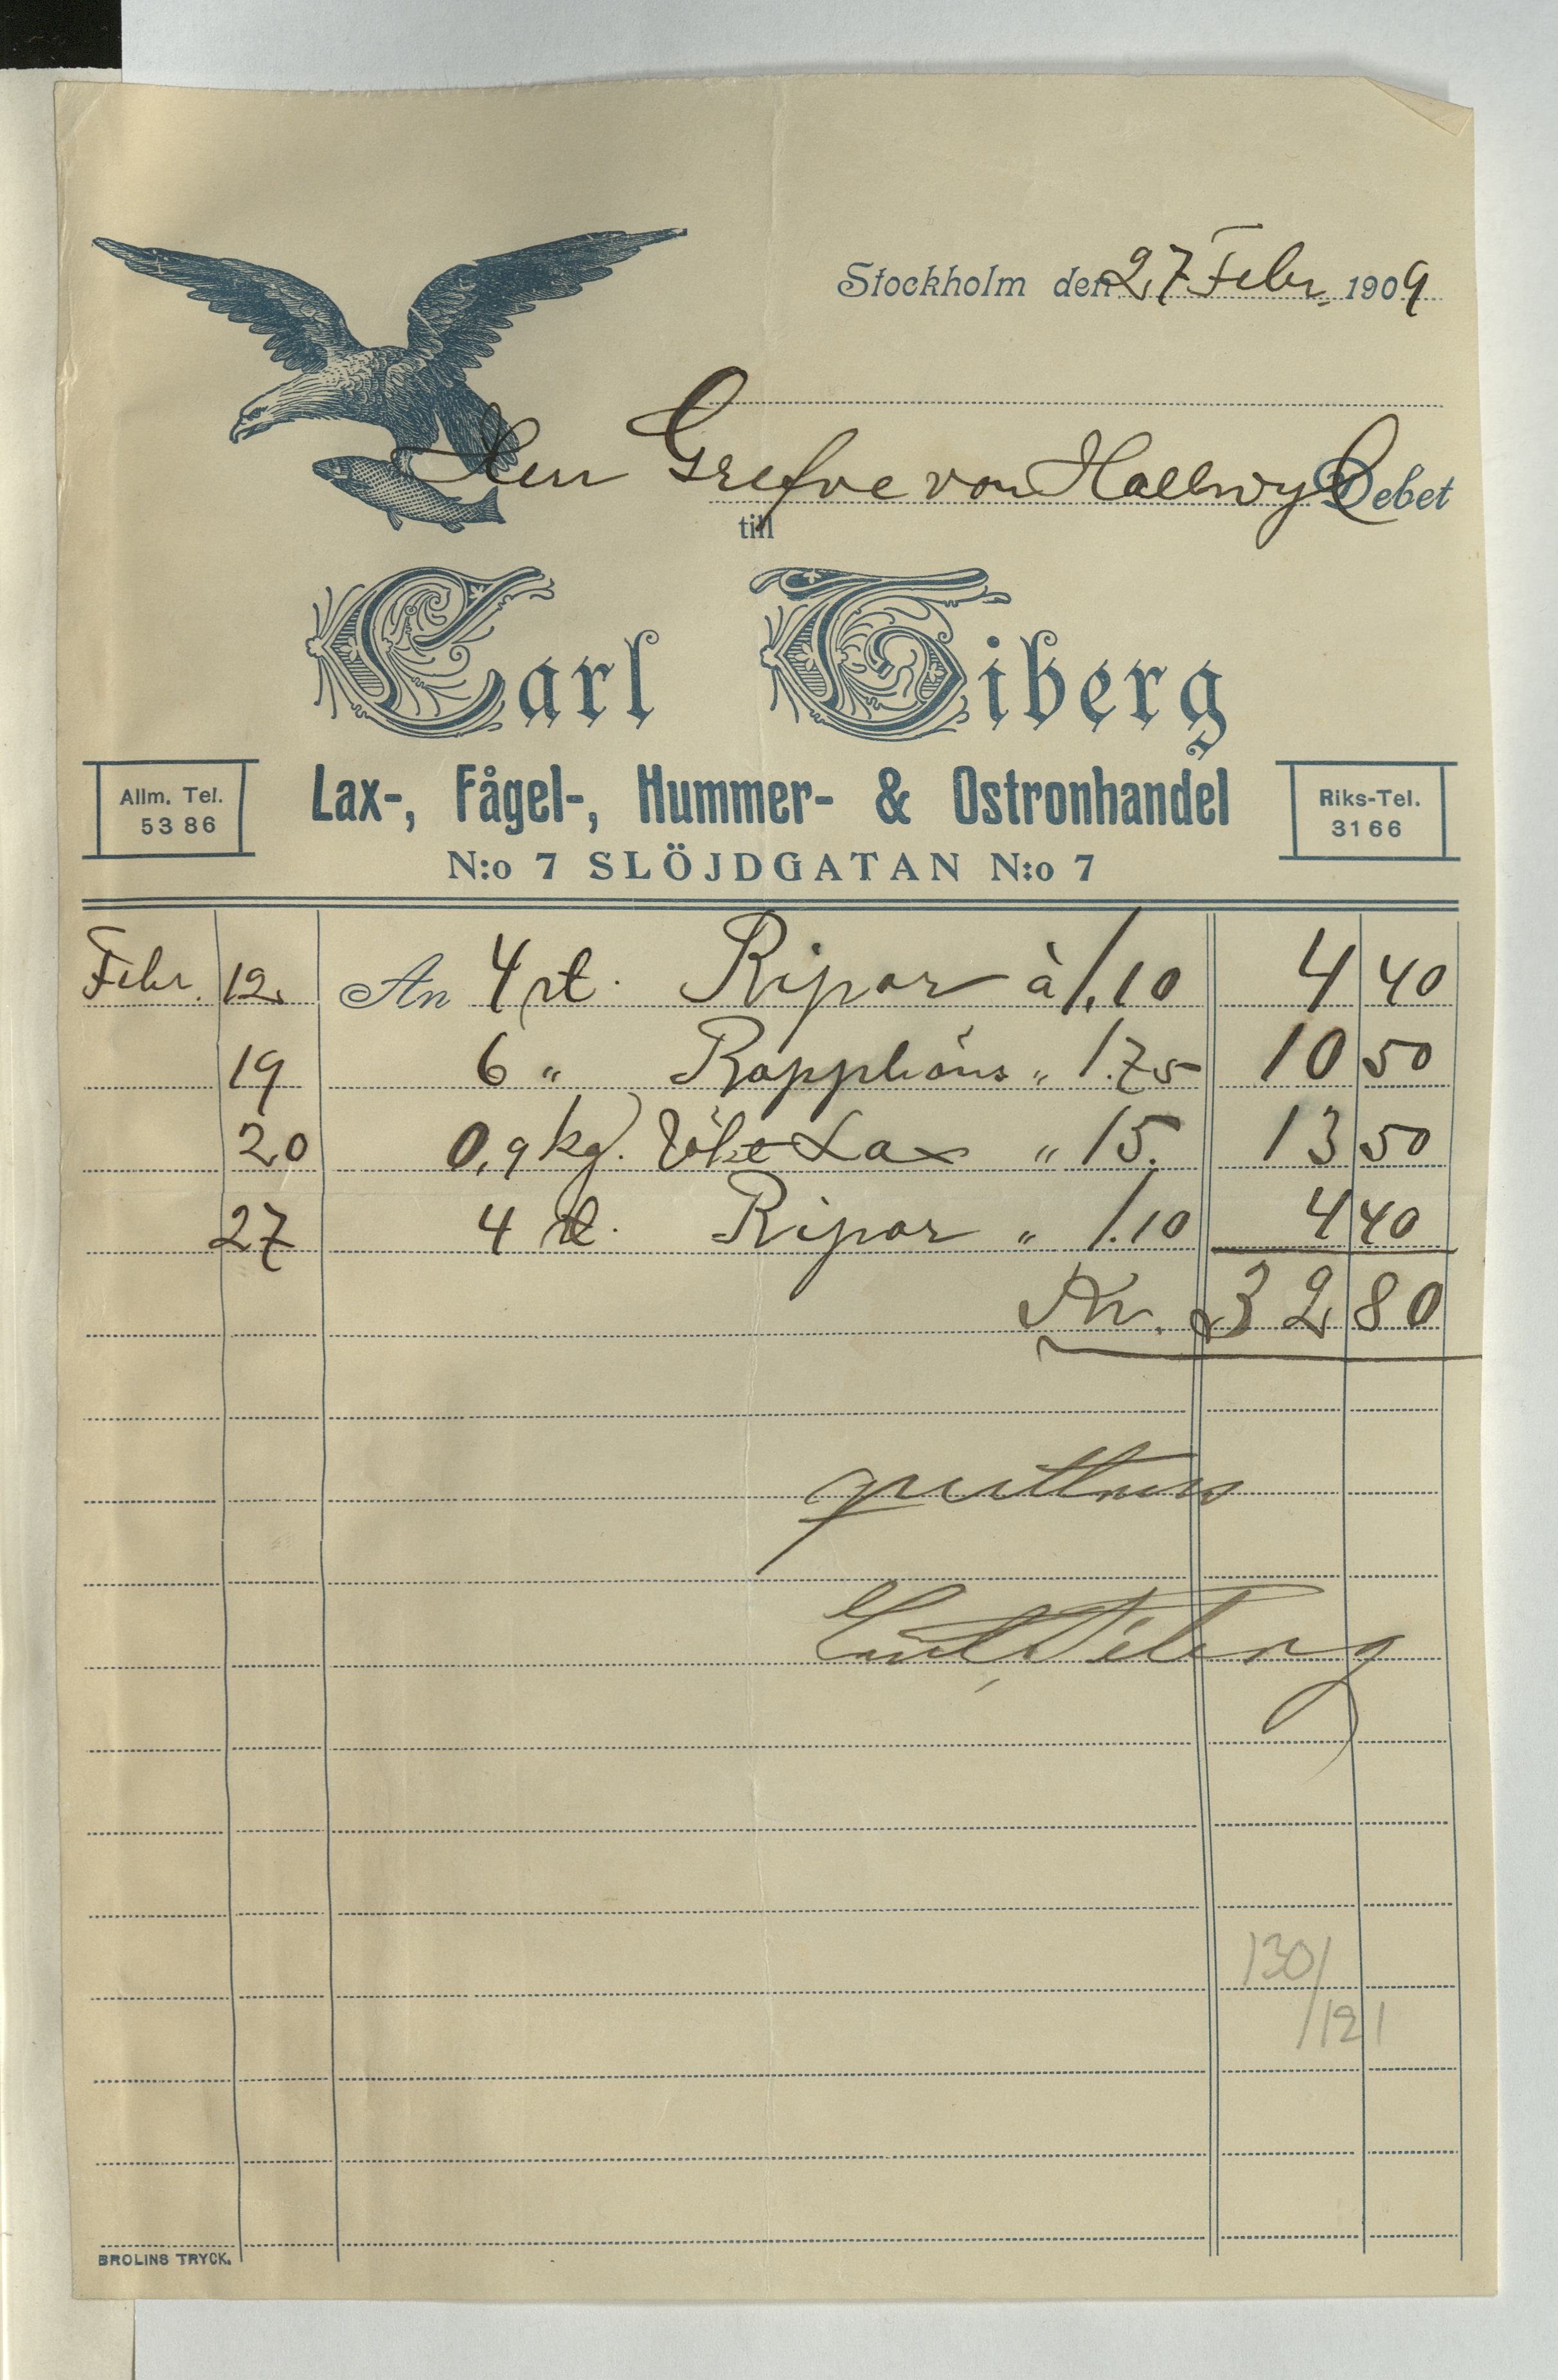 Stockholm den 27 Febr. 1909
Herr Grefve von Hallwyl Debet
till
Carl Tiberg
Allm. Tel. 5386
Lax-, Fågel-, Hummer- & Ostronhandel
Riks-Tel. 3166
N:o 7 SLÖJDGATAN N:o 7
Febr. 12. An 4 st. Ripor à 1.10 4 40
19 6 " Rapphöns " 1.75 10 50
20 0,9 kg. rökt Lax " 15. 13 50
27 4 st. Ripor " 1.10 4 40
Kr. 32 80
qvitteras
Carl Tiberg
130/
/121
BROLINS TRYCK.